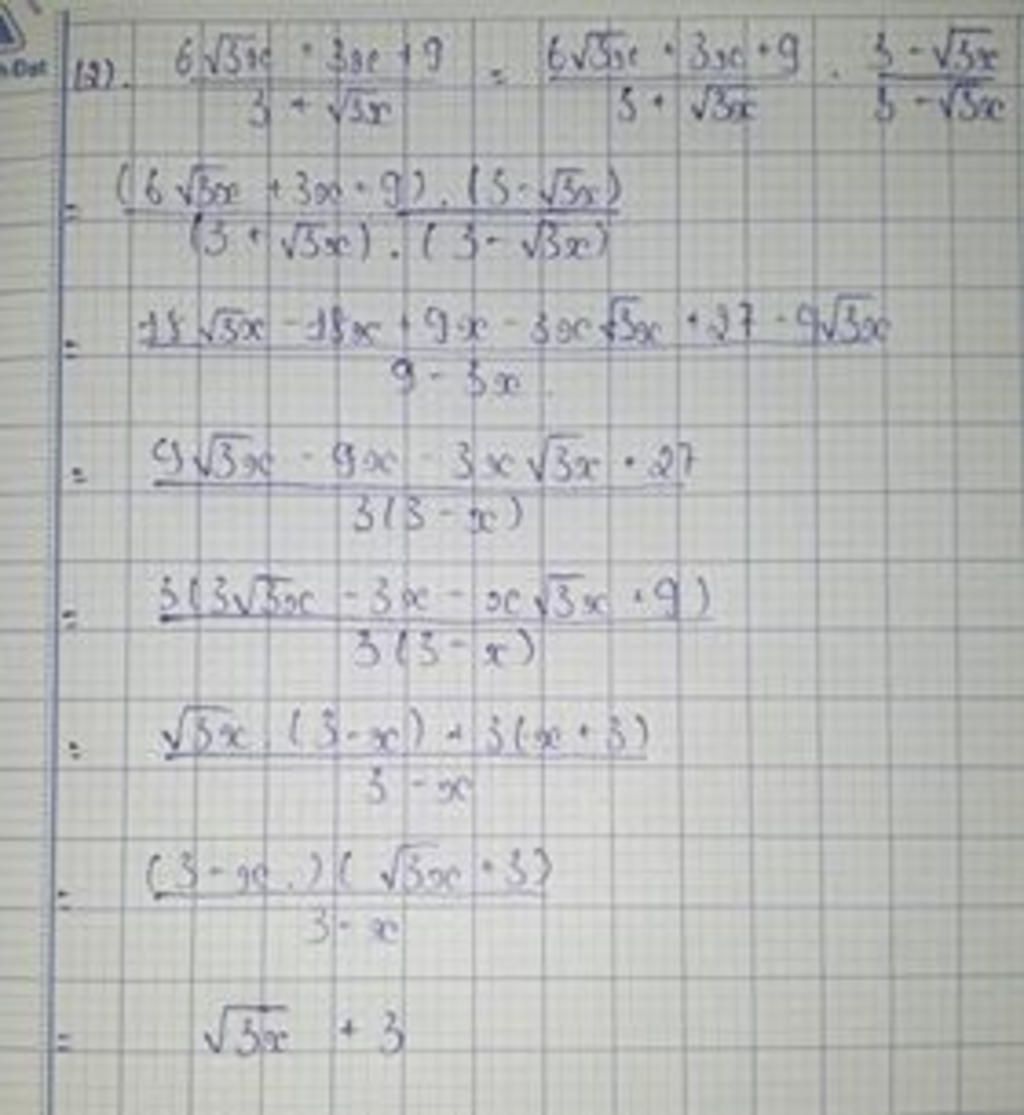 (2). (6√3x + 3x + 9)/(3 + √3x) = (6√3x + 3x + 9)/(3 + √3x) . (3 - √3x)/(3 - √3x)
= ((6√3x + 3x + 9) . (3 - √3x))/((3 + √3x) . (3 - √3x))
= (18√3x - 18x + 9x - 3x√3x + 27 - 9√3x)/(9 - 3x)
= (9√3x - 9x - 3x√3x + 27)/(3(3 - x))
= (3(3√3x - 3x - x√3x + 9))/(3(3 - x))
= (√3x . (3 - x) + 3(x + 3))/(3 - x)
= ((3 - x)(√3x + 3))/(3 - x)
= √3x + 3